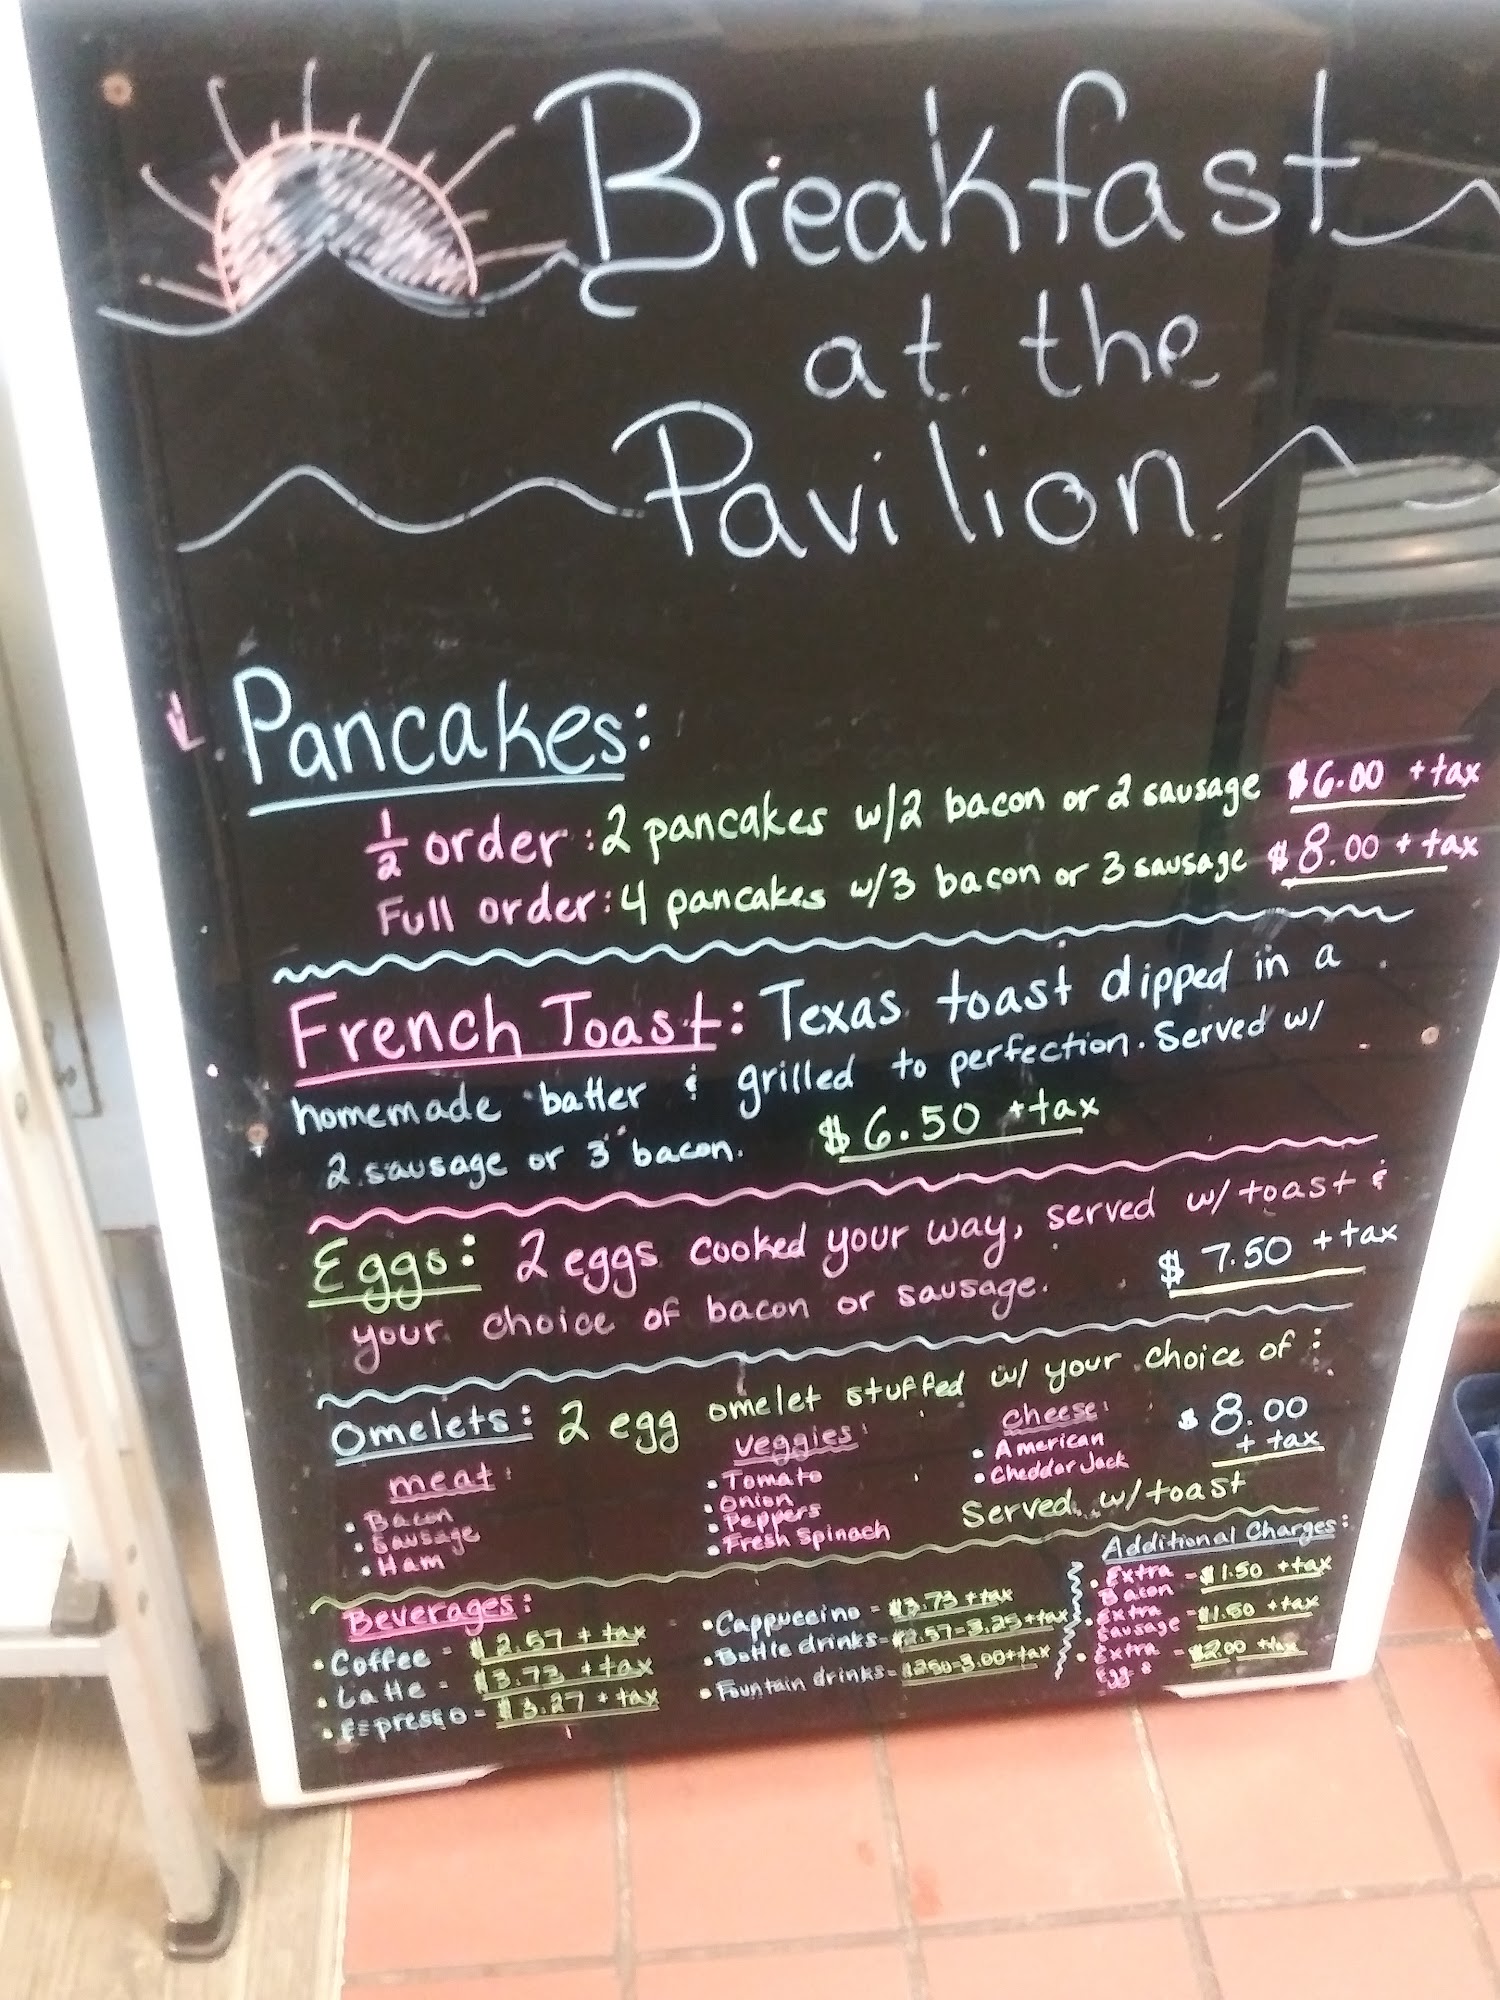 Breakfast
at the
Pavilion
Pancakes:
1/2 order: 2 pancakes w/2 bacon or 2 sausage $6.00 + tax
Full order: 4 pancakes w/3 bacon or 3 sausage $8.00 + tax
French Toast: Texas toast dipped in a
homemade batter & grilled to perfection. Served w/
2 sausage or 3 bacon. $6.50 + tax
Eggs: 2 eggs cooked your way, served w/ toast &
your choice of bacon or sausage. $7.50 + tax
Omelets: 2 egg omelet stuffed w/ your choice of:
meat:
• Bacon
• Sausage
• Ham
veggies:
• Tomato
• Onion
• Peppers
• Fresh Spinach
cheese:
• American
• Cheddar Jack
$8.00
+ tax
Served w/ toast
Beverages:
• Coffee = $2.57 + tax
• Latte = $3.73 + tax
• Espresso = $3.27 + tax
• Cappuccino = $3.73 + tax
• Bottle drinks = $2.57-3.25 + tax
• Fountain drinks = $2.50-3.00 + tax
Additional Charges:
• Extra Bacon = $1.50 + tax
• Extra Sausage = $1.50 + tax
• Extra Eggs = $2.00 + tax